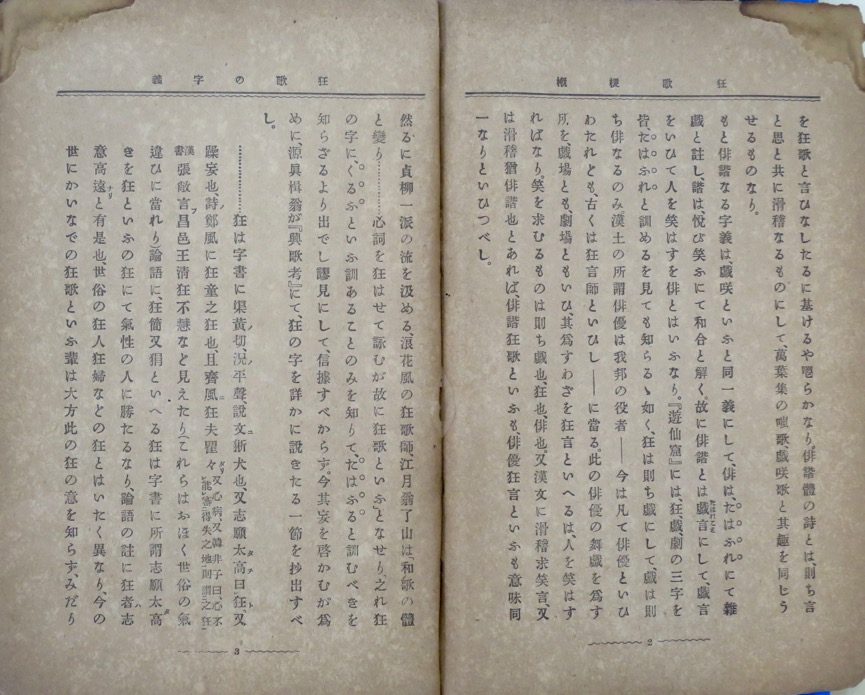 狂歌梗概
を狂歌と言ひなしたるに基けるや明らかなり。俳諧體の詩とは、則ち言
と思と共に滑稽なるものにして、萬葉集の嗤歌戯咲歌と其趣を同じう
せるものなり。
もと俳諧なる字義は、戯咲といふと同一義にして、俳は、たはふれにて雜
戯と註し、諧は、悅び笑ふにて和合と解く。故に俳諧とは戯言にして、戯言
をいひて人を笑はすを俳とはいふなり。『遊仙窟』には、狂戯劇の三字を
皆、たはふれと訓めるを見ても知らるゝ如く、狂は則ち戯にして、戯は則
ち俳なるのみ、漢土の所謂俳優は我邦の役者――今は凡て俳優といひ
わたれども、古くは狂言師といひし――に當る。此の俳優の舞戯を爲す
所を、戯場とも劇場ともいひ、其爲すわざを狂言といへるは、人を笑はす
ればなり。笑を求むるものは則ち戯也、狂也、俳也。又漢文に滑稽求笑言、又
は滑稽猶俳諧也とあれば、俳諧狂歌といふも、俳優狂言といふも意味同
一なりといひつべし。
2
狂歌の字義
然るに貞柳一派の流を汲める、浪花風の狂歌師、江月翁了山は、和歌の體
と變り…………心詞を狂はせて詠むが故に狂歌といふ」となせり。之れ狂
の字に、くるふといふ訓あることのみを知りて、たはふると訓むべきを
知らざるより出でし謬見にして、信據すべからず。今其妄を啓かむが爲
めに、源眞楫翁が『興歌考』にて、狂の字を詳かに說きたる一節を抄出すべ
し。
…………狂は字書に渠黃切、况平聲、說文狾犬也、又志願太高曰狂、又
躁妄也、詩鄭風に狂童之狂也、且齊風狂夫瞿々又心病又韓非子曰、心不能審得失之地則謂之狂
漢書張敞言、昌邑王清狂不慧など見えたり(これらはおほく世俗の氣
違ひに當れり)論語に、狂簡又狷といへる狂は字書に所謂志願太高
きを狂といふの狂にて氣性の人に勝たるなり、論語の註に狂者志
意高遠と有是也、世俗の狂人狂婦などの狂とはいたく異なり、今の
世にかいなでの狂歌といふ輩は大方此の狂の意を知らず、みだり
3